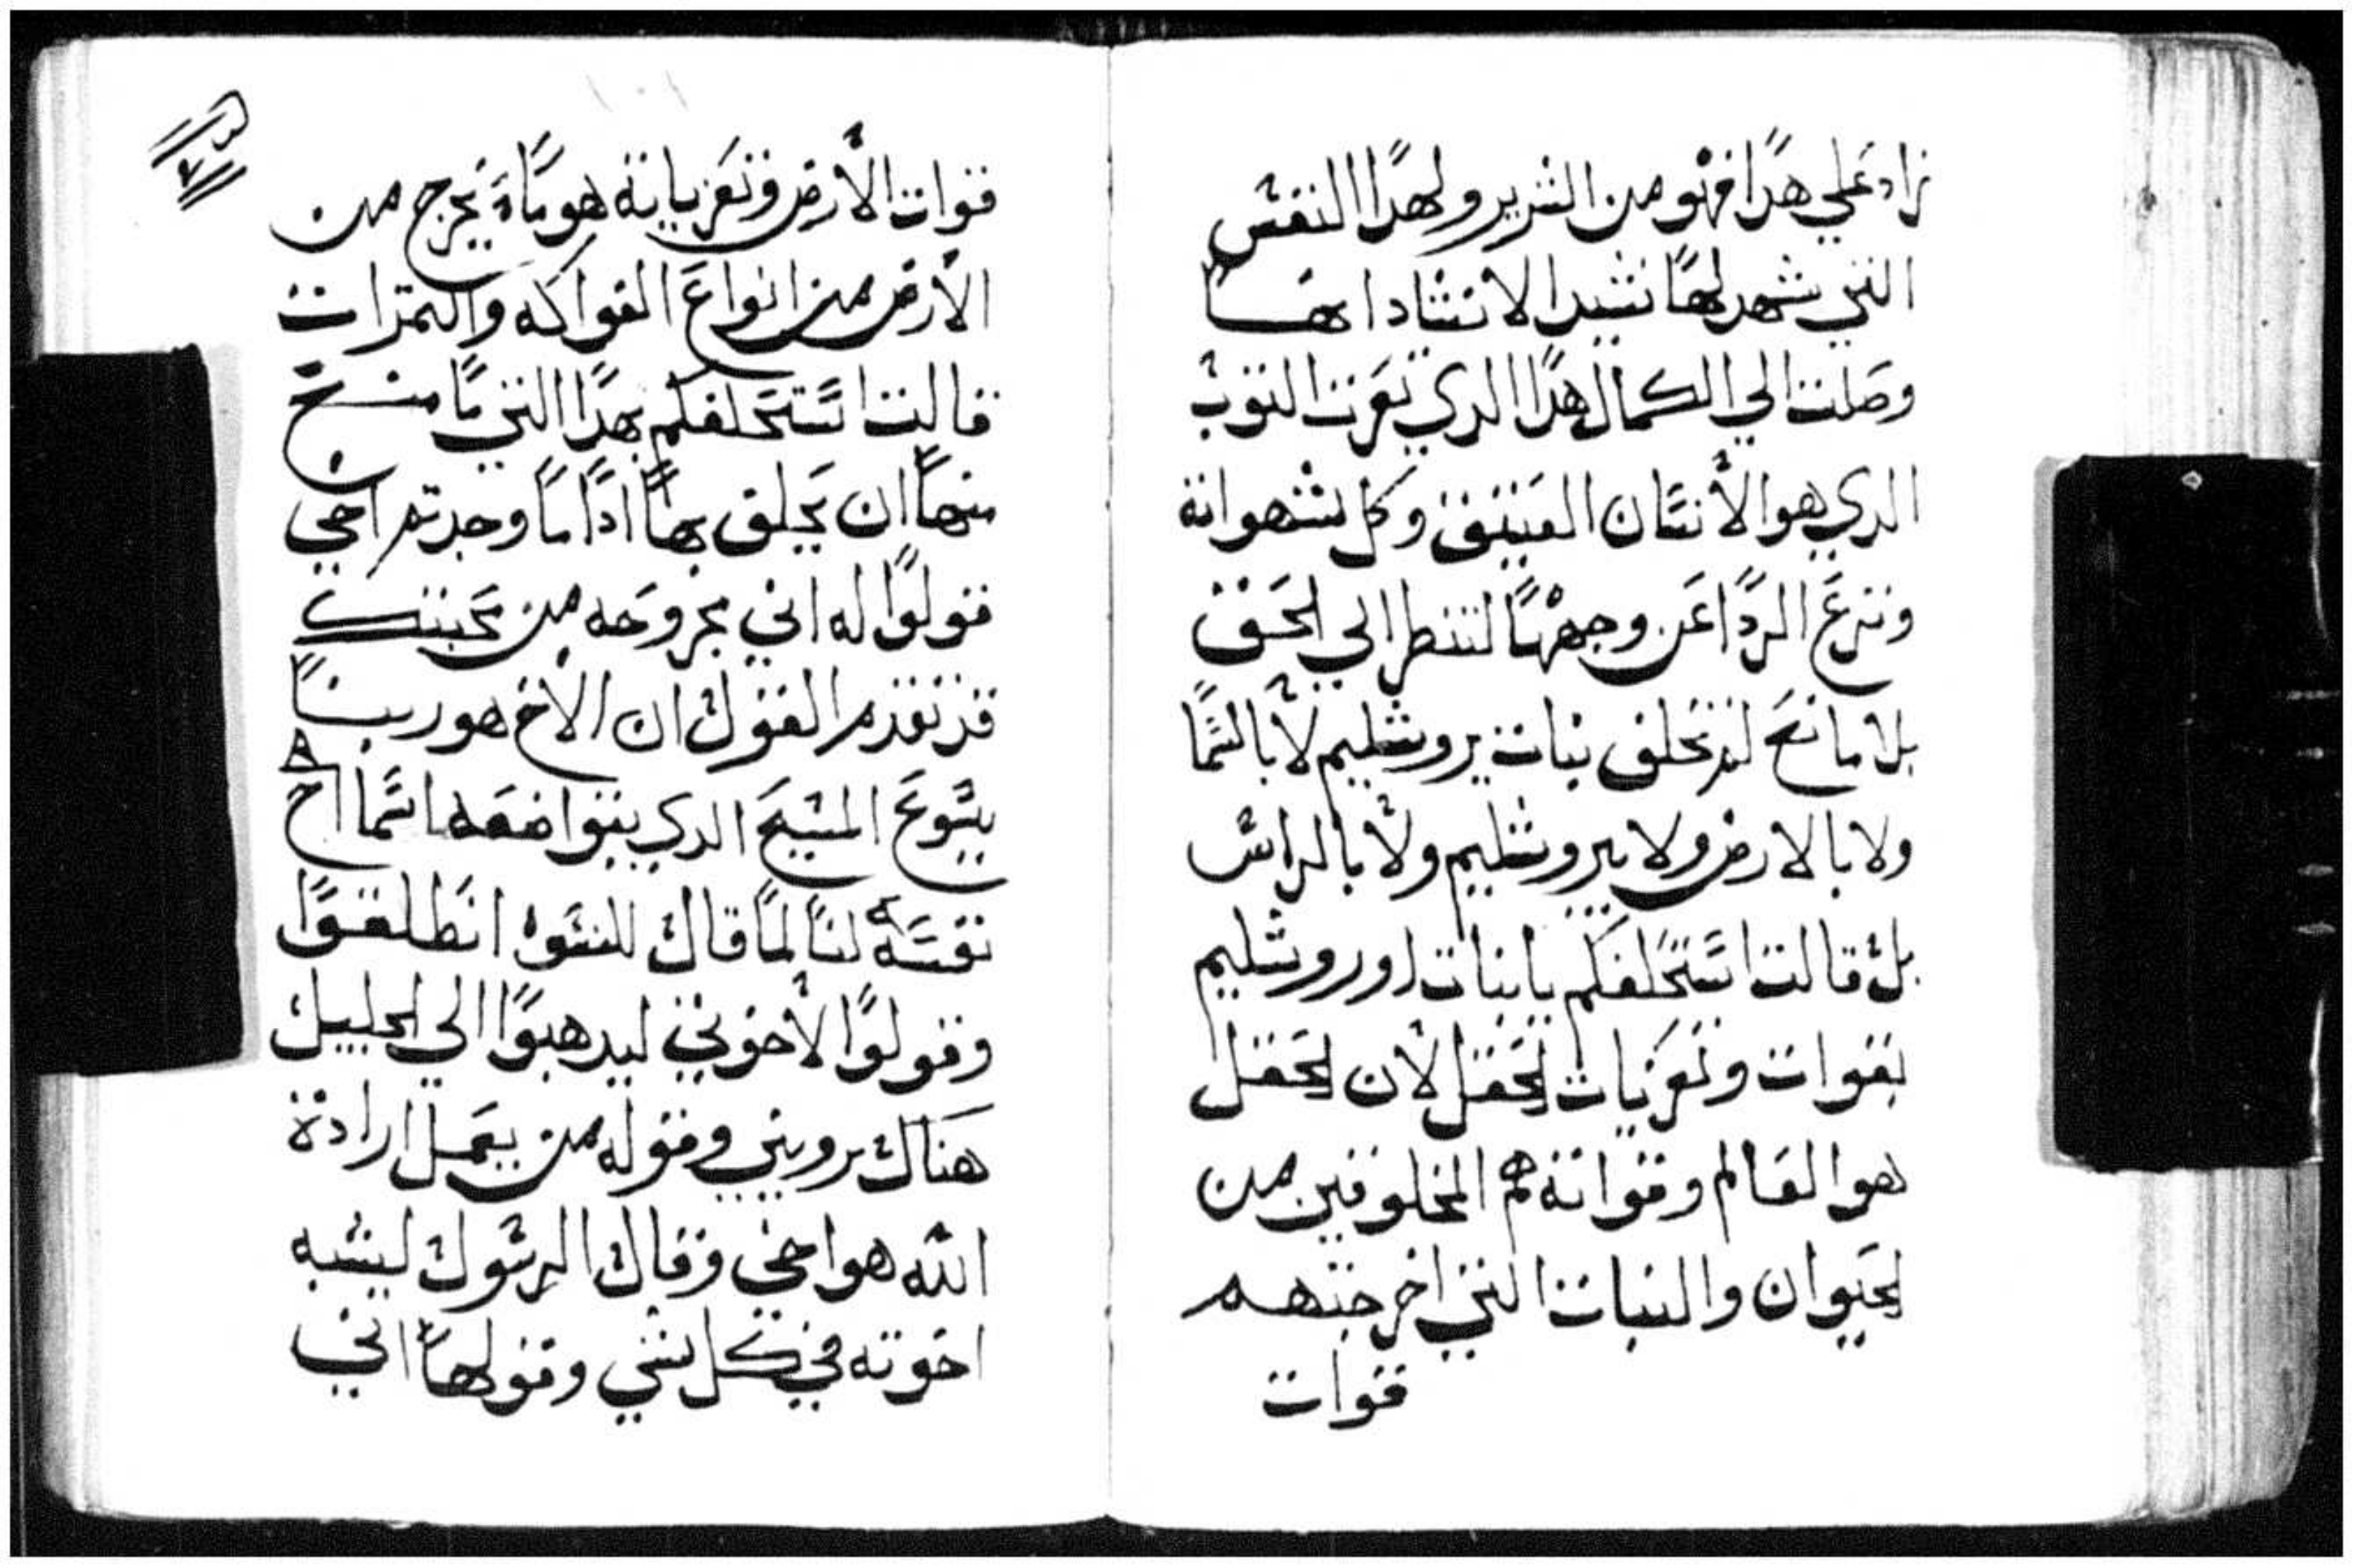 زاد علي هدا فهو من الشرير ولهدا النفس
التي شهد لها نشيد الانشاد انها
وصلت الي الكمال هدا الدي تعرت التوب
الدي هو الأنسان العتيق وكل شهواته
وتنزع الردا عن وجهها لتنظر الي الحق
بلا مانع لم تحلف بنات يروشليم لا بالسما
ولا بالارض ولا بيروشليم ولا بالراس
بل قالت استحلفكم يا بنات اوروشليم
بقوات وتعزيات الحقل لأن الحقل
هو العالم وقواته هم المخلوقين من
الحيوان والنبات التي اخرجتهم
قوات
قوات الأرض وتعزياته هو ماء يخرج من
الأرض من انواع الفواكه والتمرات
قالت استحلفكم بهدا التي ما منع
منها ان يحلف بها ادا ما وجدتم اخي
قولوا له اني مجروحه من محبتك
قد تقدم القول ان الأخ هو ربنا
يسوع المسيح الدي بتواضعه اسما اخ
نفسه لنا لما قال للنسوه انطلقوا
وقولوا لأخوتي ليدهبوا الي الجليل
هناك يروني وقوله من يعمل ارادة
الله هو اخي وقال الرسول ليشبه
اخوته في كل شي وقولها اني